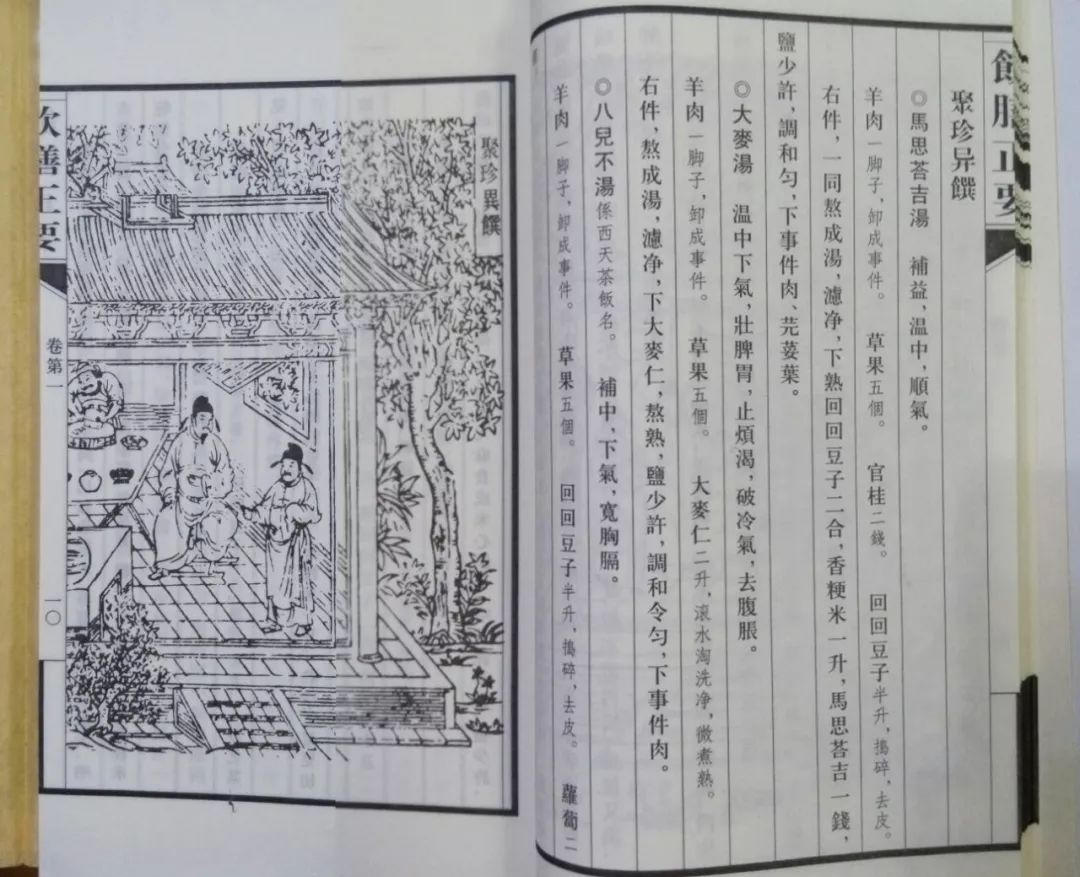 飲膳正要
聚珍异饌
◎馬思荅吉湯　補益，溫中，順氣。
羊肉一脚子，卸成事件。　草果五個。　官桂二錢。　回回豆子半升，搗碎，去皮。
右件，一同熬成湯，濾净，下熟回回豆子二合，香粳米一升，馬思荅吉一錢，
鹽少許，調和匀，下事件肉、芫荽葉。
◎大麥湯　溫中下氣，壯脾胃，止煩渴，破冷氣，去腹脹。
羊肉一脚子，卸成事件。　草果五個。　大麥仁二升，滚水淘洗净，微煮熟。
右件，熬成湯，濾净，下大麥仁，熬熟，鹽少許，調和令匀，下事件肉。
◎八兒不湯係西天茶飯名。　補中，下氣，寬胸膈。
羊肉一脚子，卸成事件。　草果五個。　回回豆子半升，搗碎，去皮。　蘿蔔二
聚珍異饌
飲膳正要
卷第一
一〇